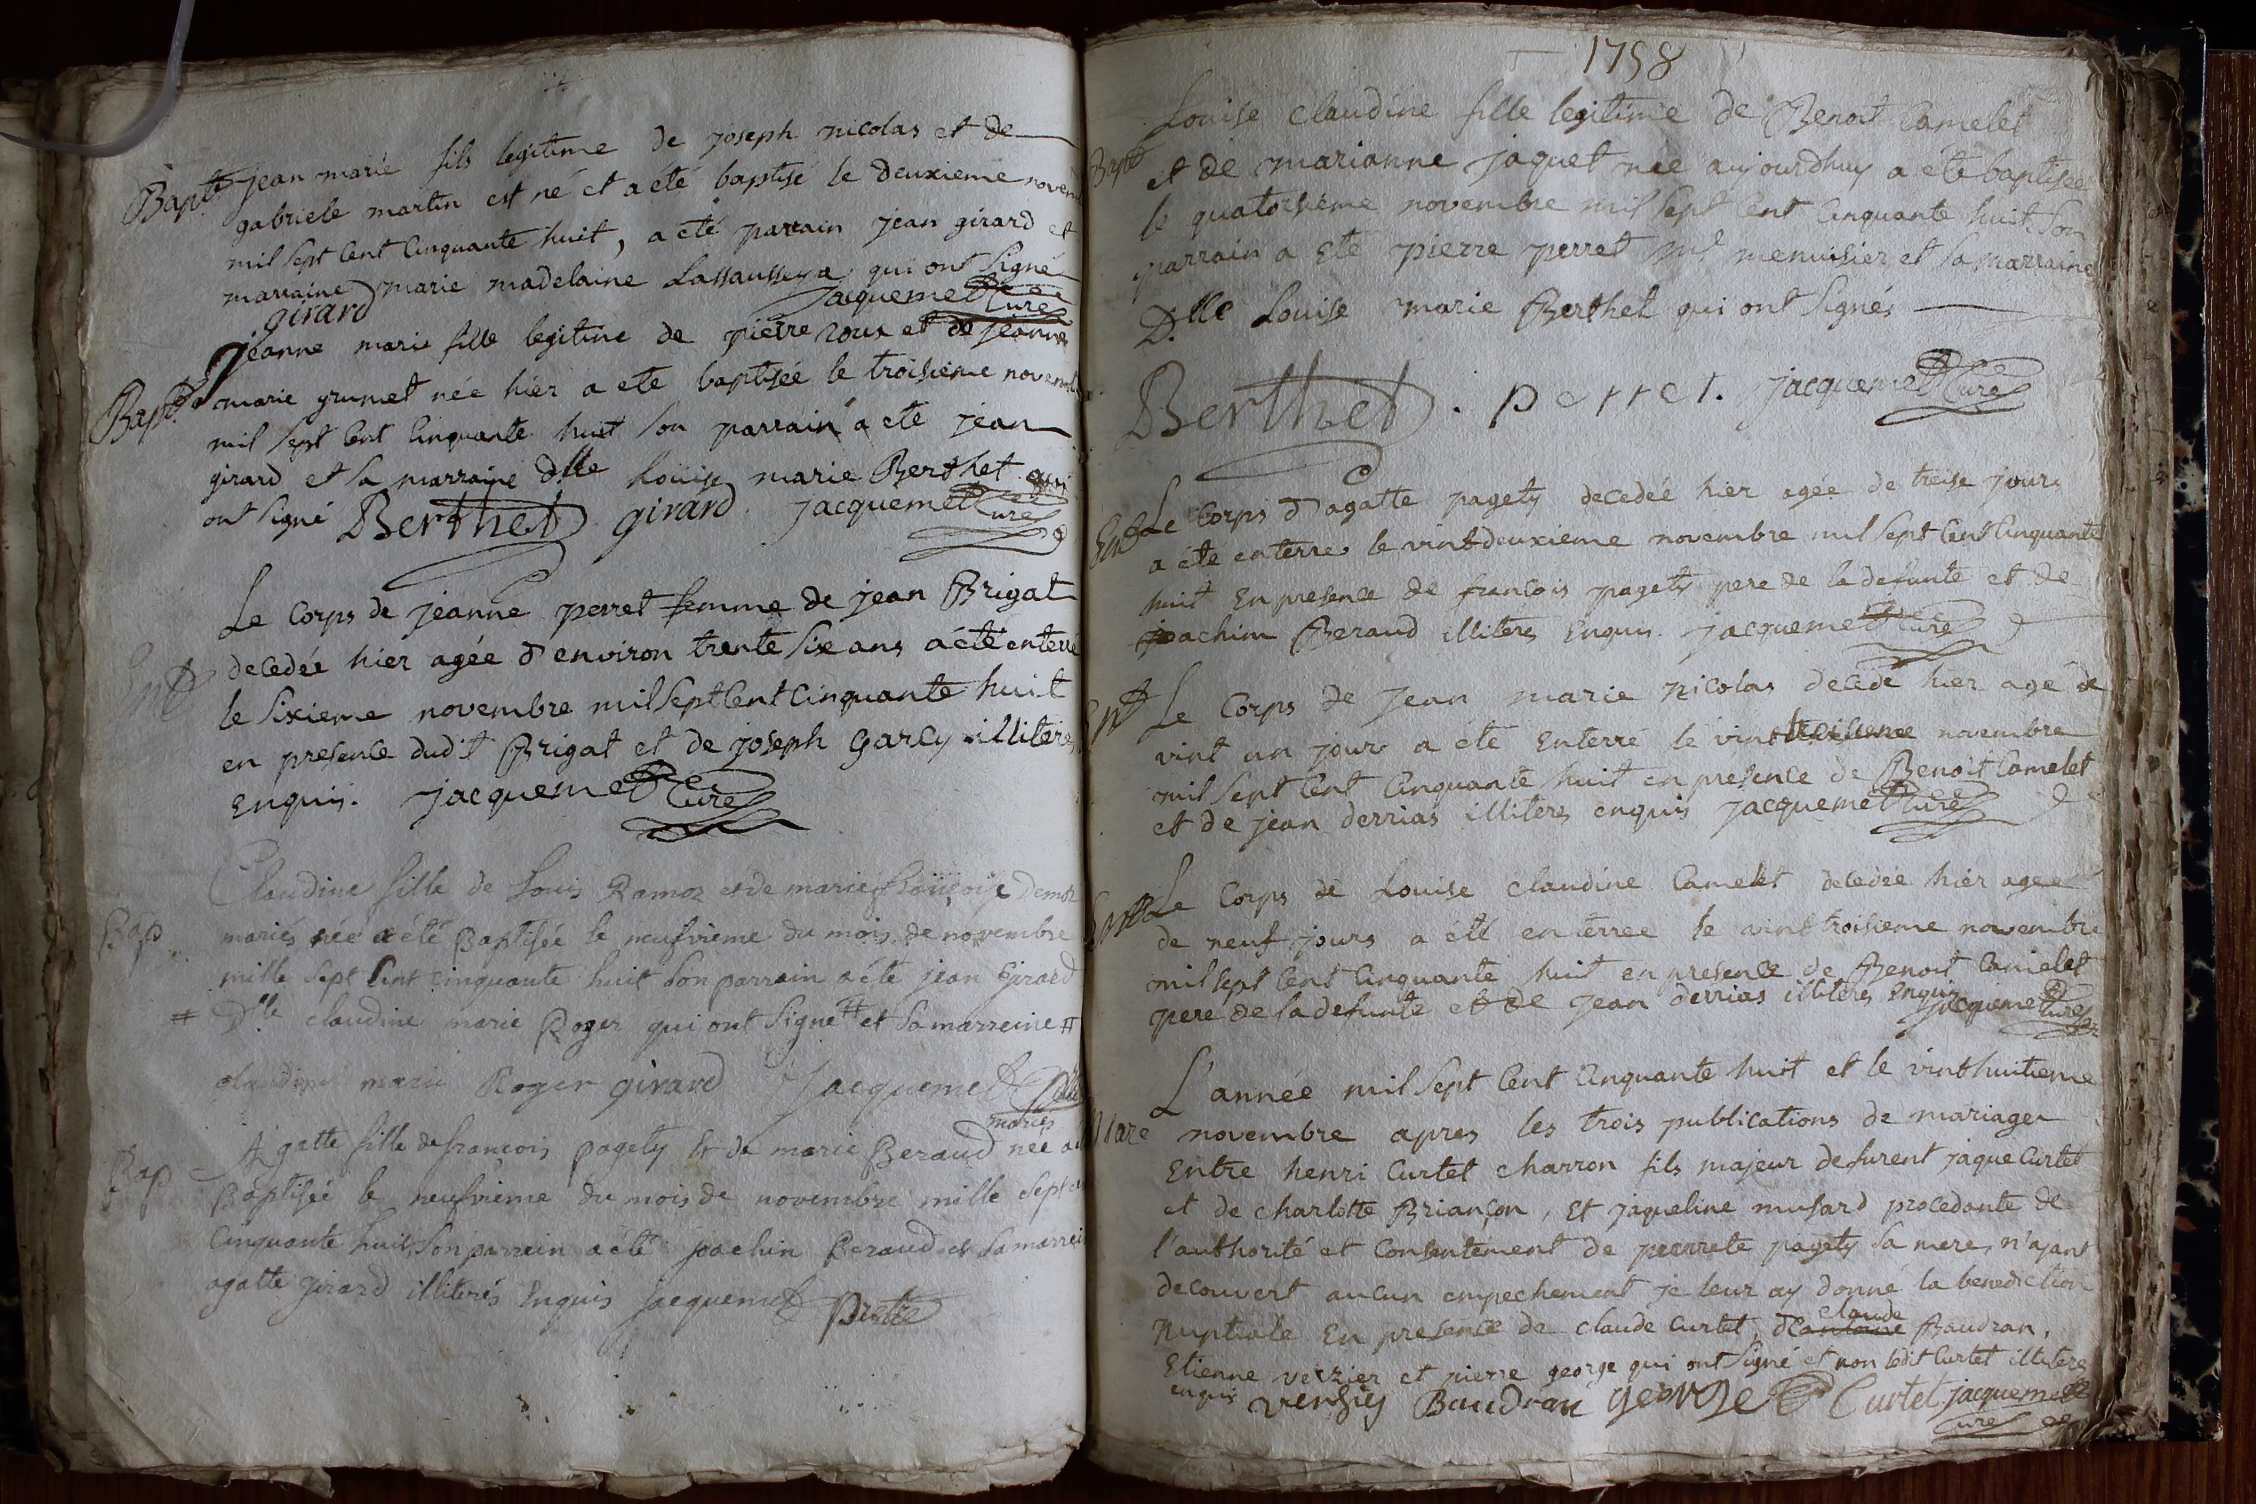 Bapt. jean marie fils legitime de joseph nicolas et de
gabriele martin est né et a eté baptisé le deuxieme novem
mil sept cent cinquante huit, a eté parrain jean girard et
marraine marie madelaine Lassausseya qui ont signé
girard jacquemet curé
jeanne marie fille legitime de pierre roux et de jeanne
Bapt. marie grumet née hier a ete baptisée le troisieme novemb
mil sept cent cinquante huit son parrain a eté jean
girard et sa marraine dlle Louise marie Berthet qui
ont signé Berthet girard jacquemet curé
Le Corps de jeanne perret femme de jean Brigat
Ent decedée hier agée d environ trente six ans a eté enterré
le sixieme novembre mil sept cent cinquante huit
en presence dudit Brigat et de joseph Garcy illiteres
enquis. jacquemet curé
Claudine fille de Louis Ramoz et de marie françoise
Bap mariés née a eté Baptisée le neufvieme du mois de novembre
mille sept cent cinquante huit son parrain a éte jean Girard
# Dlle claudine marie Roger qui ont signe # et sa marreine #
claudine marie Roger girard jacquemet
mariés
Bap Agatte fille de francois pagety et de marie Beraud née a
Baptisée le neufvieme du mois de novembre mille sept
cinquante huit son parrein a été joachin Beraud et sa marrei
agatte girard illiterés enquis jacquemet prestre
1758
Louise Claudine fille legitime de Benoit Camelet
Bapt et de marianne jaquet née aujourdhuy a été baptisée
le quatorsieme novembre mil sept cent cinquante huit son
parrain a eté pierre perret menuisier et sa marraine
D.lle Louise marie Berthet qui ont signés
Berthet . perret . jacquemet curé
Ent Le corps d agatte pagety decedée hier agée de treise jours
a été enterrée le vint deuxieme novembre mil sept cent cinquante
huit en presence de francois pagety pere de la defunte et de
joachim Beraud illiteres enquis. jacquemet curé
Ent Le corps de jean marie nicolas decedé hier agé de
vint un jours a éte enterré le vint troisieme novembre
mil sept cent cinquante huit en presence de Benoit Camelet
et de jean derrias illiteres enquis jacquemet curé
Ent Le corps de Louise claudine Camelet decedée hier agée
de neuf jours a été enterree le vint troisieme novembre
mil sept cent cinquante huit en presence de Benoit Camelet
pere de la defunte et de jean derrias illiteres enquis jacquemet curé
L'année mil sept cent cinquante huit et le vint huitieme
Mare novembre apres les trois publications de mariage
entre henri Curtet charron fils majeur defurent jaque Curtet
et de charlotte Briançon, et jaqueline musard procedante de
l'authorité et consentement de pierrete pagety sa mere, n'ajant
decouvert aucun empechement je leur ay donné la benediction
claude
nuptiale en presence de claude curtet, d'antoine Baudran,
Etienne verzier et pierre george qui ont signé et non ledit Curtet illitere
enquis verzier Baudran george Curtet jacquemet
curé